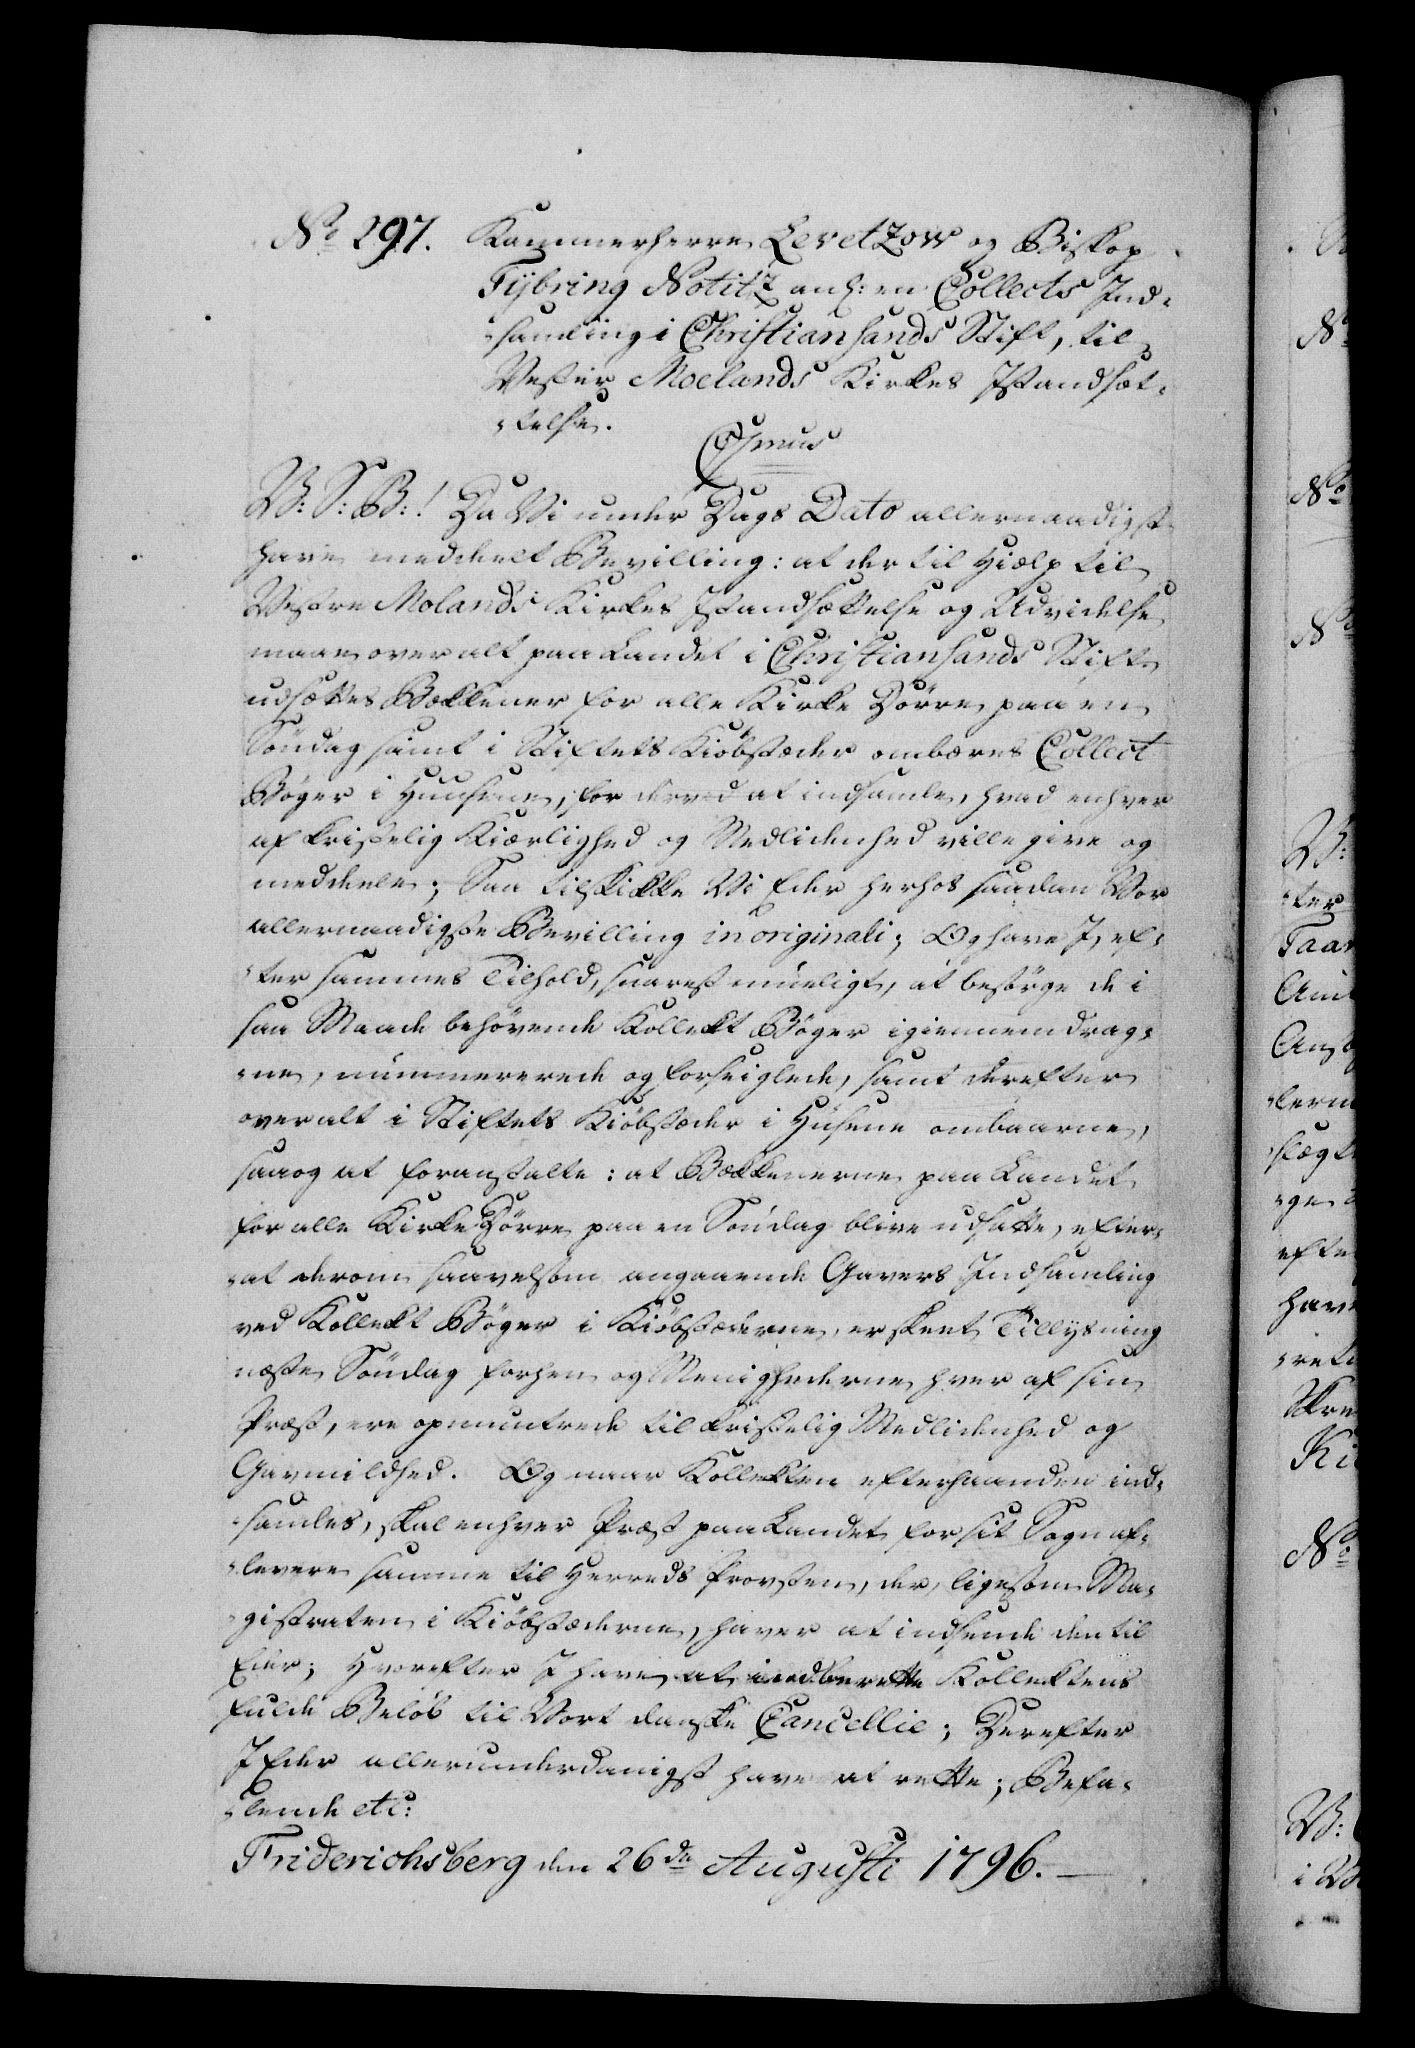 No 297. Kammerherre Levetzow og Biskop
Tÿbring Notitz anl: en Collects Ind-
samling i Christiansands Stift, til
Vester Moelands Kirkes Istandsæt-
telse.
Csmus
V: S: B:! Da Vi under Dags Dato allernaadigst
have meddeelt Bevilling: at der til Hiælp til
Vestre Molands Kirkes Istandsættelse og Udvidelse
maae over alt paa Landet i Christiansands Stift
udsættes Bækkener for alle Kirke Dørre paa en
Søndag samt i Stiftets Kiøbstæder ombæres Collect
Bøger i Huusene, for derved at indsamle, hvad enhver
af kristelig Kiærlighed og Medlidenhed ville give og
meddele; Saa tilskikke Vi Eder herhos saadan Vor
allernaadigste Bevilling in originali; Og have I, ef-
ter sammes Tilhold, snarest mueligt, at besørge de i
saa Maade behøvende Kollekt Bøger igiennemdrag-
ne, nummererede og forseiglede, samt derefter
overalt i Stiftets Kiøbstæder i Husene ombaarne,
saaog at foranstalte: at Bækkenerne paa Landet
for alle Kirke Dørre paa en Søndag blive udsatte, efter-
at derom saavelsom angaaende Gavers Indsamling
ved Kollekt Bøger i Kiøbstæderne, er skeet Tillysning
næste Søndag forhen og Menighederne hver af sin
Præst, ere opmuntrede til kristelig Medlidenhed og
Gavmildhed. Og naar Kollekten efterhaanden ind-
samles, skal enhver Præst paa Landet for sit Sogn af-
levere samme til Herreds Provsten, der, ligesom Ma-
gistraten i Kiøbstæderne, haver at indsende den til
Eder; Hvorefter I have at indberette Kollektens
fulde Beløb til Vort danske Cancellie; Derefter
I Eder allerunderdanigst have at rette; Befa-
lende etc:
Friderichsberg den 26de Augusti 1796.